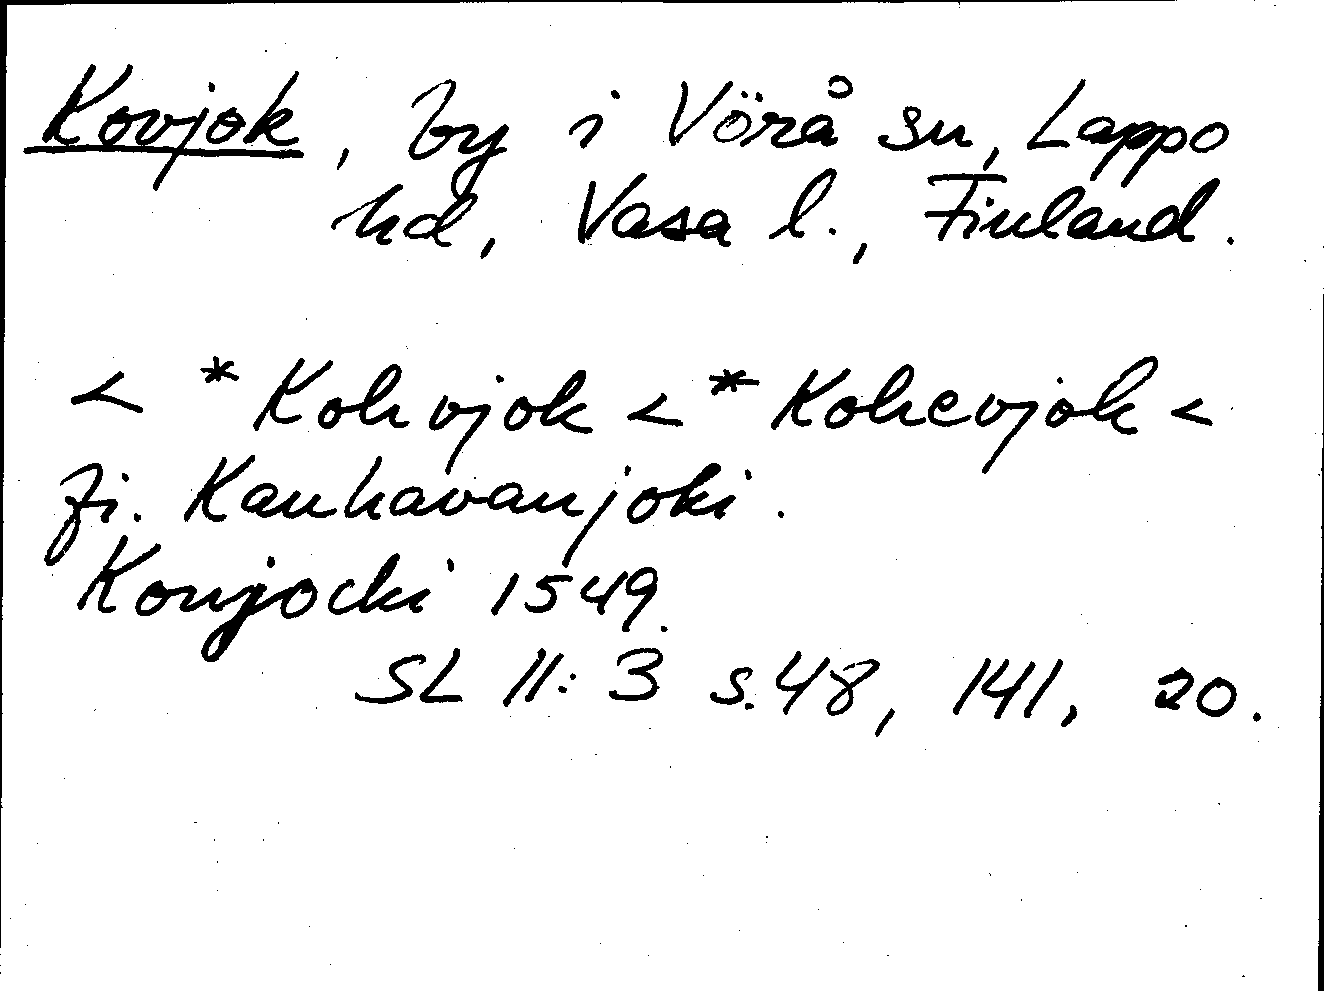 Kovjok, by i Vörå sn, Lappo
hd, Vasa l., Finland.
< *Kohvjok < *Kohevjok <
fi. Kauhavanjoki.
Kouijocki 1549.
SL II: 3 s. 48, 141, 20.